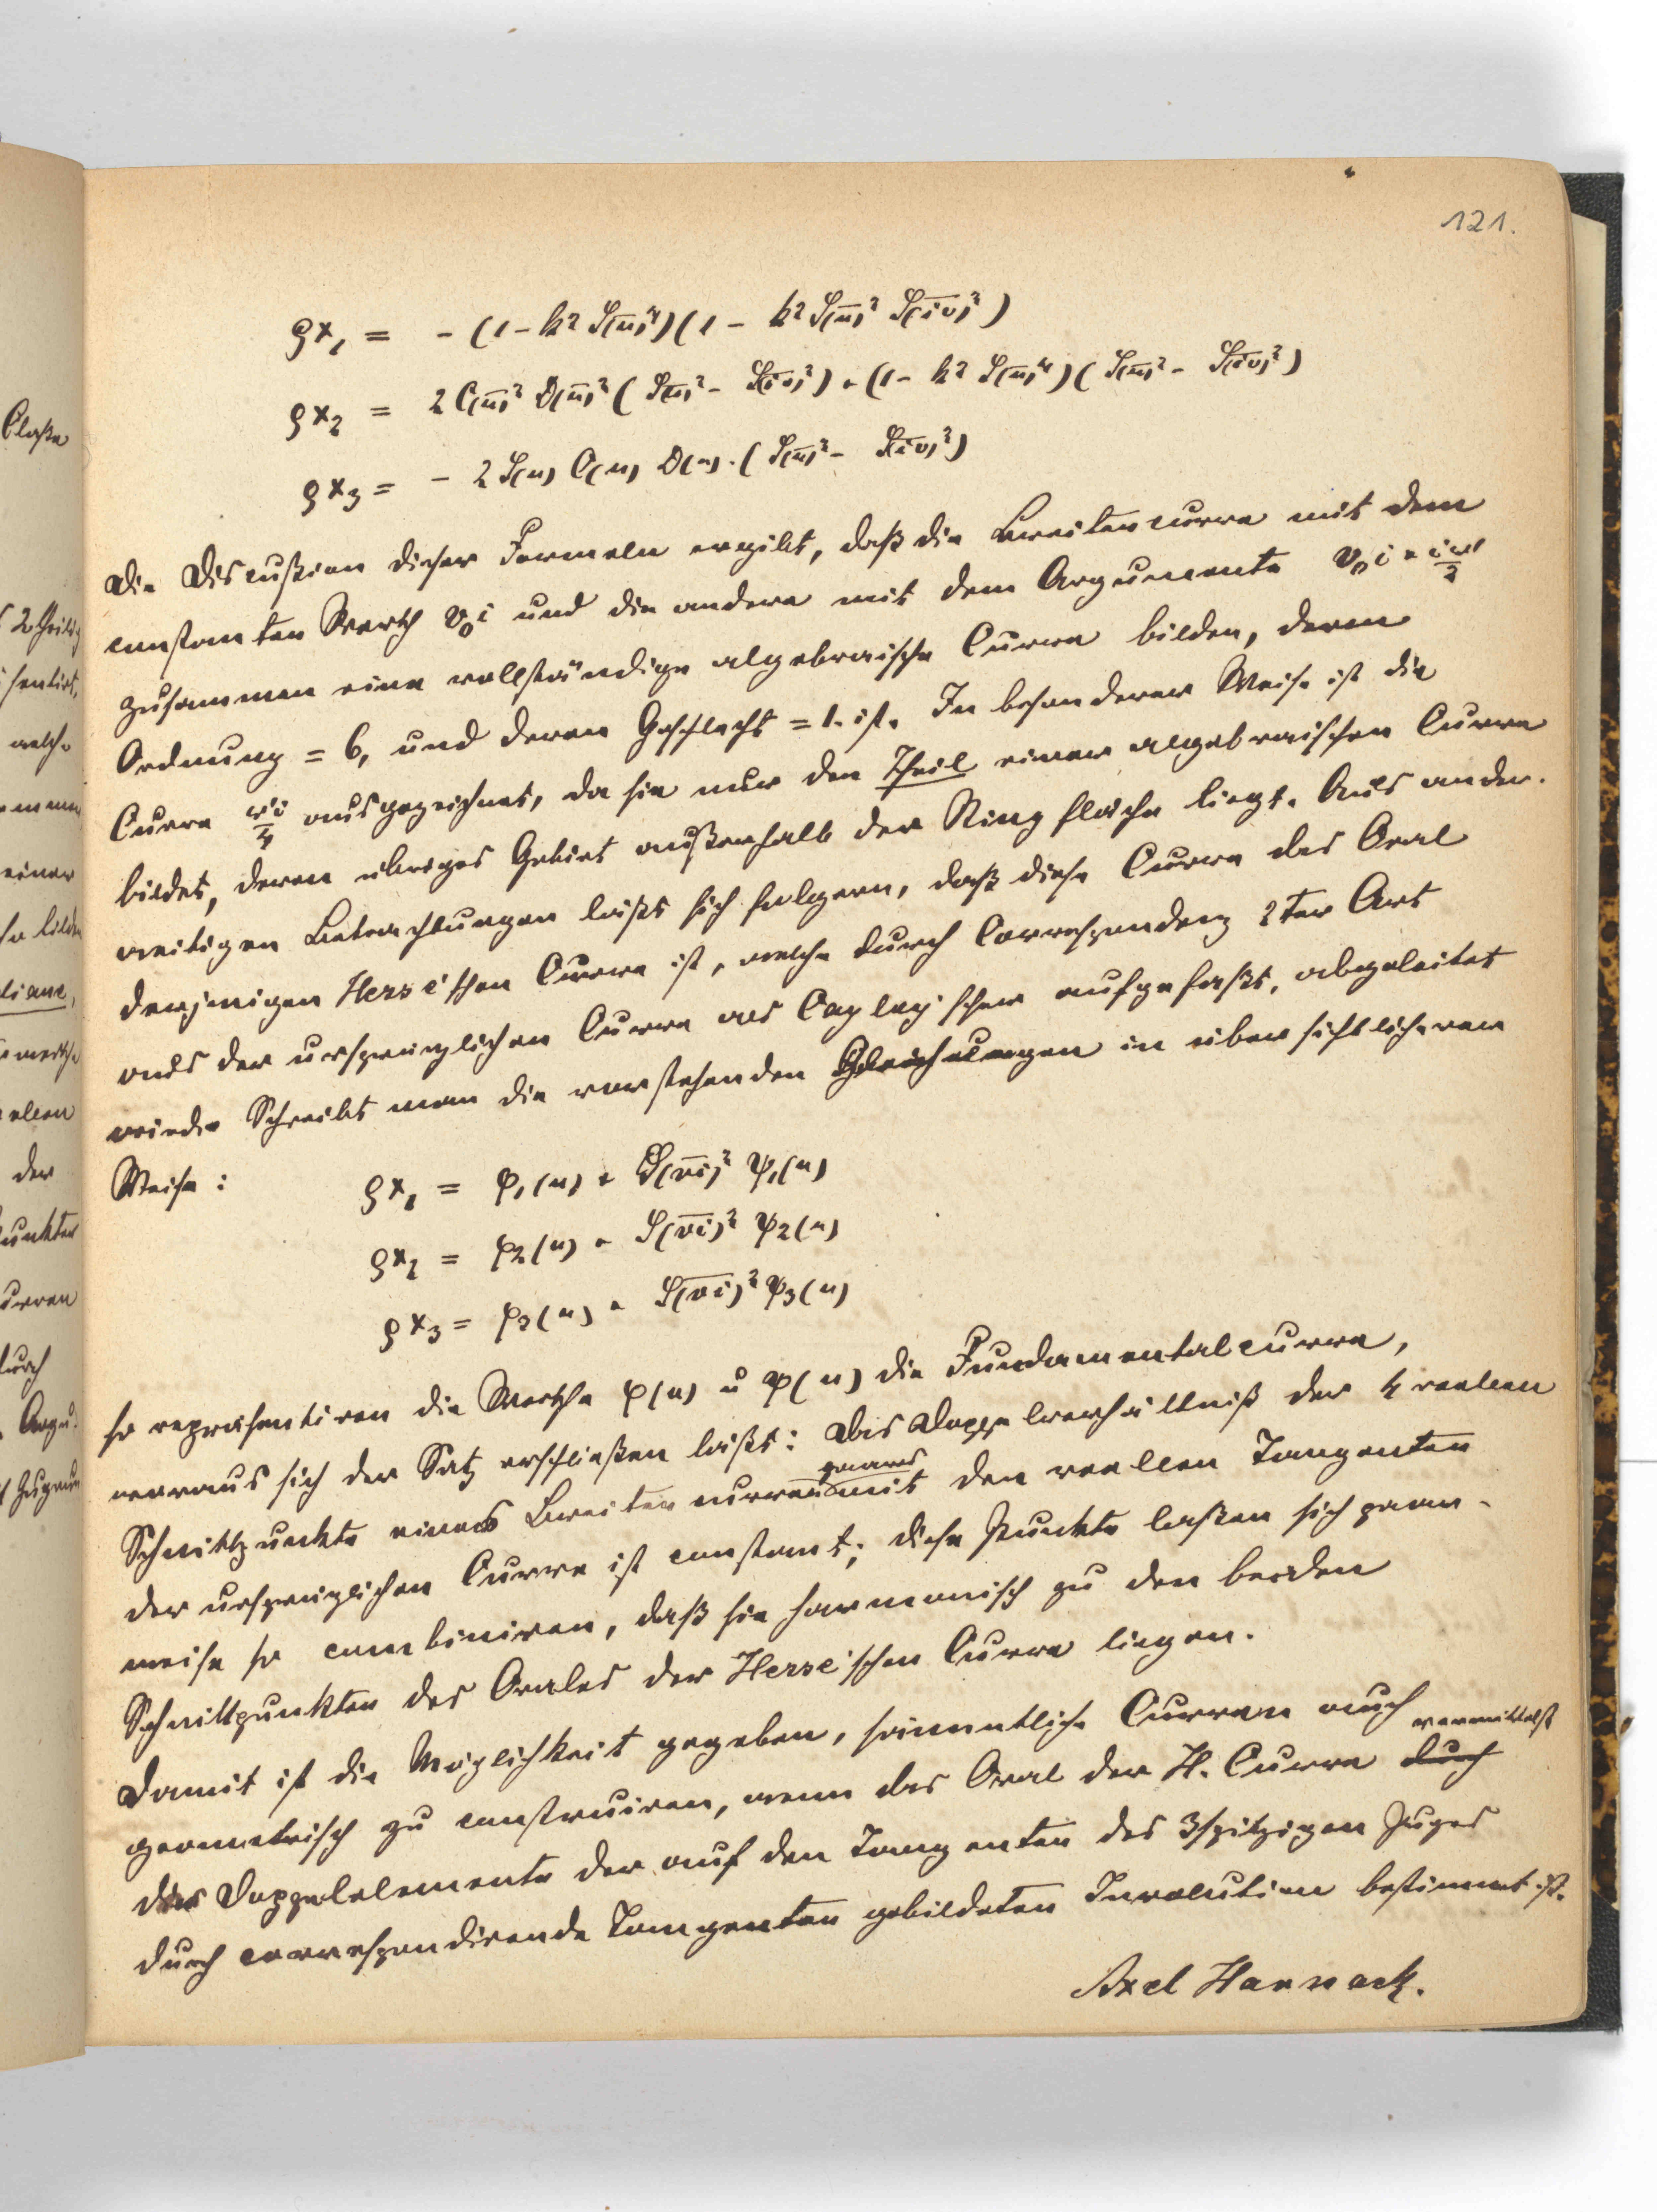 121.
ϱx₁ = - (1 - k² S(u)⁴)(1 - k² S(u)² S(iv)²)
ϱx₂ = 2 C(u)² D(u)² ( S(u)² - S(iv)² ) + (1 - k² S(u)⁴)( S(u)² - S(iv)² )
ϱx₃ = - 2 S(u) C(u) D(u) · ( S(u)² - S(iv)² )
Die Discußion dieser Formeln ergibt, daß die Breitencurve mit dem
constanten Werth v₀i und die andere mit dem Argumente v₀i + iω'/2
zusammen eine vollständige algebraische Curve bilden, deren
Ordnung = 6, und deren Geschlecht = 1 ist. In besonderer Weise ist die
Curve ω'i/4 ausgezeichnet, da sie nur den Theil einer algebraischen Curve
bildet, deren übriges Gebiet außerhalb der Ringfläche liegt. Aus ander-
weitigen Betrachtungen läßt sich folgern, daß diese Curve das Oval
derjenigen Hesse'schen Curve ist, welche durch Correspondenz 2ter Art
aus der ursprünglichen Curve als Cayley'scher aufgefaßt, abgeleitet
wird. Schreibt man die vorstehenden Gleichungen in übersichtlicherer
Weise :
ϱx₁ = φ₁(u) + S(vi)² ψ₁(u)
ϱx₂ = φ₂(u) + S(vi)² ψ₂(u)
ϱx₃ = φ₃(u) + S(vi)² ψ₃(u)
so repräsentiren die Werthe φ(u) u ψ(u) die Fundamentalcurve,
woraus sich der Satz erschließen läßt: Das Doppelverhältniß der 4 reellen
Schnittpunkte eines Breitencurvenpaares mit den reellen Tangenten
der ursprünglichen Curve ist constant; diese Punkte laßen sich paar-
weise so combiniren, daß sie harmonisch zu den beiden
Schnittpunkten des Ovales der Hesse'schen Curve liegen.
Damit ist die Möglichkeit gegeben, sämmtliche Curven auch
geometrisch zu construiren, wenn das Oval der H. Curve durch vermittelst
der Doppelelemente der auf den Tangenten des 3spitzigen Zuges
durch correspondirende Tangenten gebildeten Involution bestimmt ist.
Axel Harnack.